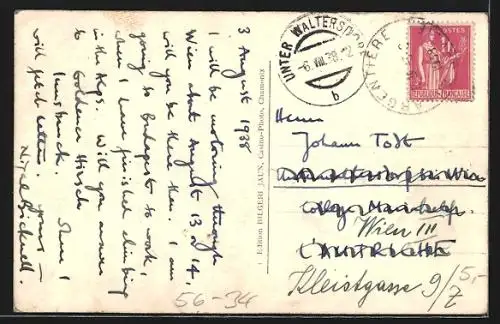 3 August 1938
I will be motoring through
Wien about August 13 or 14.
Will you be there then. I am
going to Budapest to work,
when I have finished climbing
in the Alps. Will you answer
to Goldener Hirsch
Innsbruck. Then I
will get letter. yours —
Nigel
Edition BILGERI JAUN, Casino-Photo, Chamonix
UNTER WALTERSDORF
6. VIII. 38. 12
b
ARGENTIÈRE
POSTES
REPUBLIQUE FRANÇAISE
Herrn
Johann Tost
Wien III
L'AUTRICHE
Kleistgasse 9/7
5,-
56-34